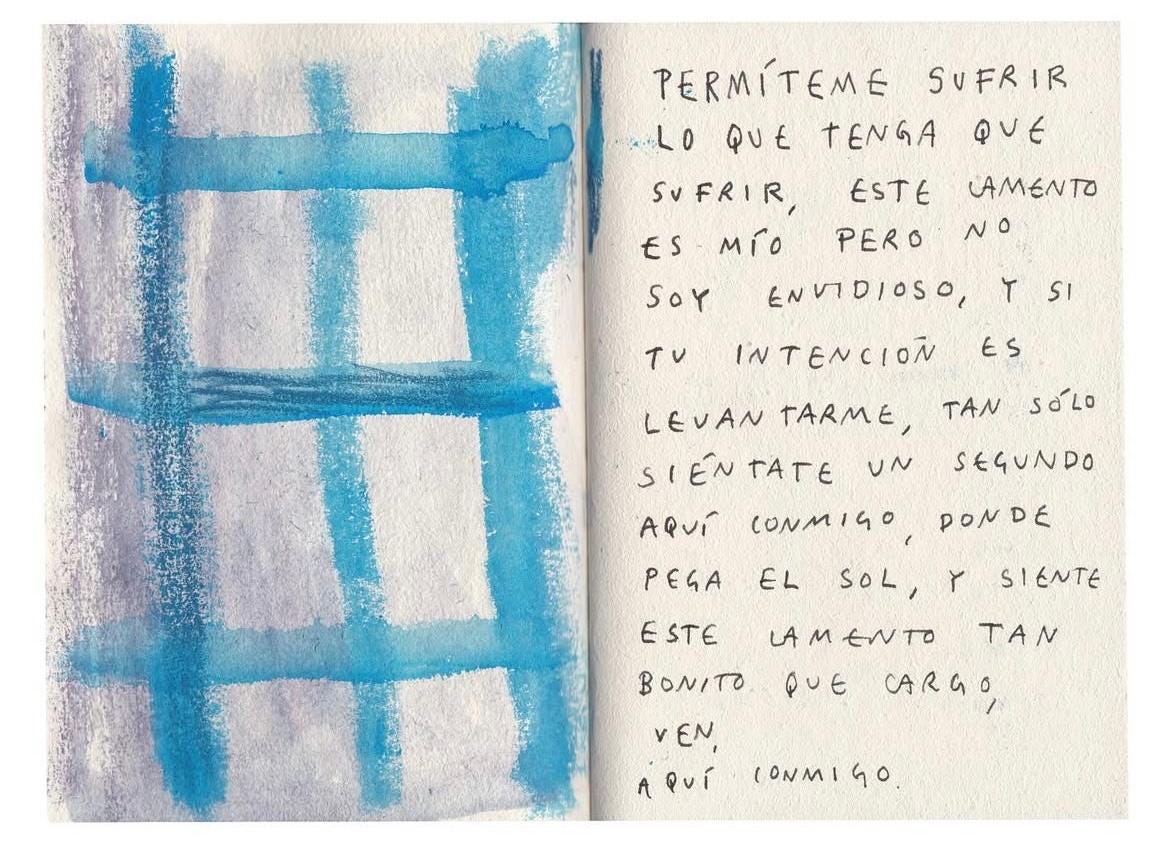 PERMÍTEME SUFRIR
LO QUE TENGA QUE
SUFRIR, ESTE LAMENTO
ES MÍO PERO NO
SOY ENVIDIOSO, Y SI
TU INTENCIOÑ ES
LEVANTARME, TAN SÓLO
SIÉNTATE UN SEGUNDO
AQUÍ CONMIGO, DONDE
PEGA EL SOL, Y SIENTE
ESTE LAMENTO TAN
BONITO QUE CARGO,
VEN,
AQUÍ CONMIGO.